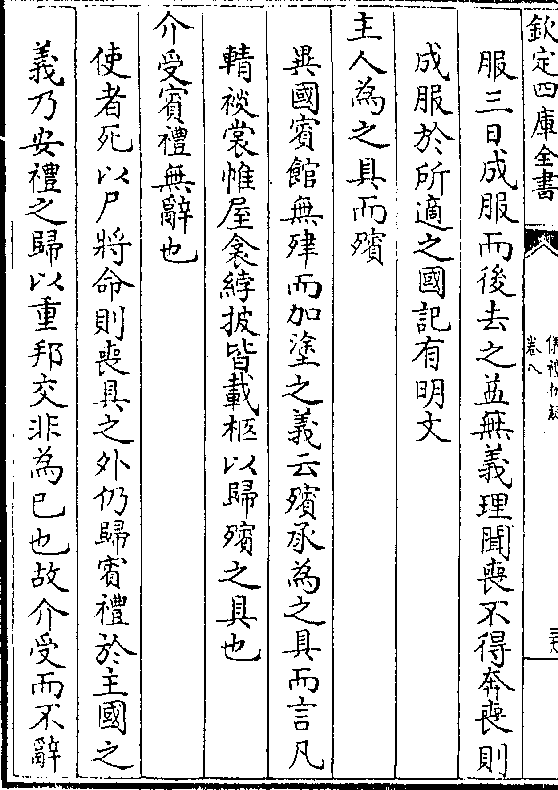 欽定四庫全書
儀禮析疑
卷八
服三日成服而後去之益無義理聞喪不得奔喪則
成服於所適之國記有明文
主人為之具而殯
異國賓館無肂而加塗之義云殯承為之具而言凡
輤裧裳帷屋衾綍披皆載柩以歸殯之具也
介受賓禮無辭也
使者死以尸將命則喪具之外仍歸賓禮於主國之
義乃安禮之歸以重邦交非為已也故介受而不辭